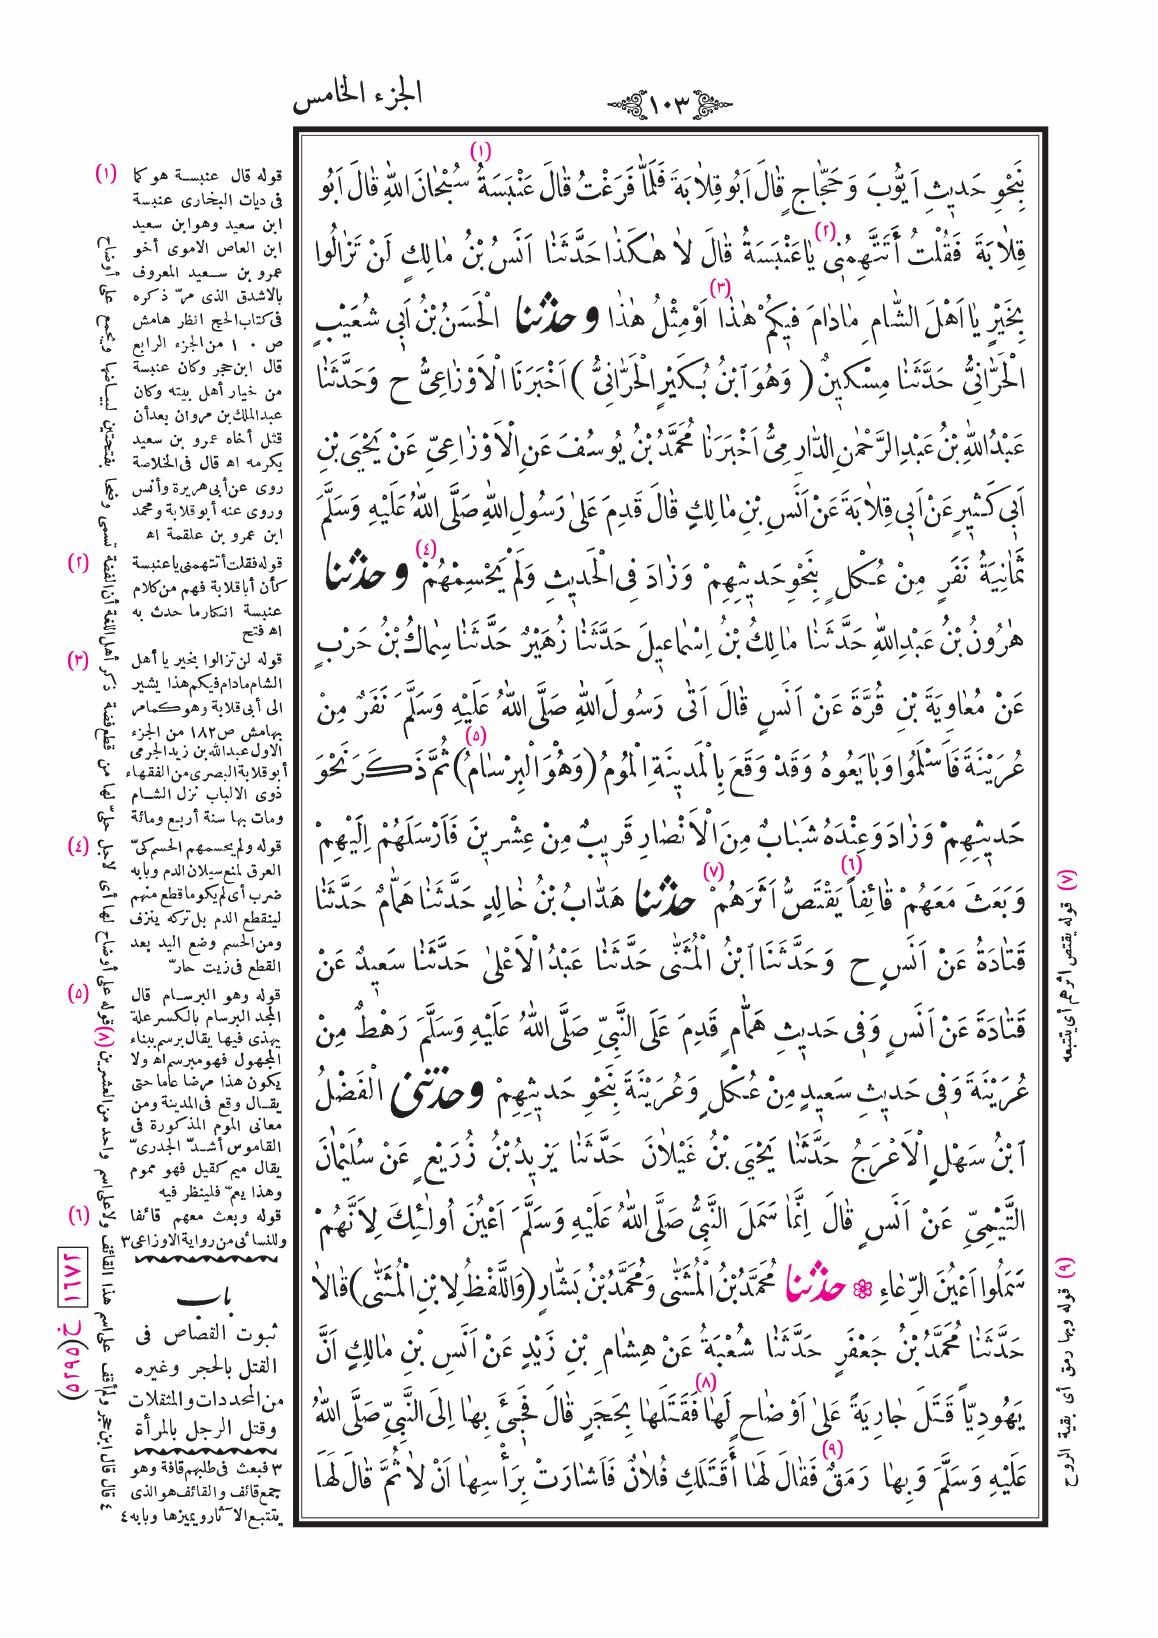 الجزء الخامس
﴿١٠٣﴾
بِنَحْوِ حَديثِ اَيُّوبَ وَحَجَّاجٍ قٰالَ اَبُوقِلاٰبَةَ فَلَمّٰا فَرَغْتُ قٰالَ عَنْبَسَةُ (١) سُبْحٰانَ اللهِ قٰالَ اَبُو
قِلاٰبَةَ فَقُلْتُ أَتَتَّهِمُنِى (٢) يٰاعَنْبَسَةُ قٰالَ لاٰ هٰكَذٰا حَدَّثَنٰا اَنَسُ بْنُ مٰالِكٍ لَنْ تَزٰالُوا
بِخَيْرٍ يٰا اَهْلَ الشّٰامِ مٰادٰامَ فيكُمْ هٰذٰا (٣) اَوْمِثْلُ هٰذٰا وحدثنا الْحَسَنُ بْنُ اَبى شُعَيْبٍ
الْحَرّٰانِىُّ حَدَّثَنٰا مِسْكينٌ (وَهُوَ ابْنُ بُكَيْرٍ الْحَرّٰانِىُّ) اَخْبَرَنَا الْاَوْزٰاعِىُّ ح وَحَدَّثَنٰا
عَبْدُاللهِ بْنُ عَبْدِالرَّحْمٰنِ الدّٰارِمِىُّ اَخْبَرَنٰا مُحَمَّدُ بْنُ يُوسُفَ عَنِ الْاَوْزٰاعِىِّ عَنْ يَحْيَى بْنِ
اَبى كَثيرٍ عَنْ اَبى قِلاٰبَةَ عَنْ اَنَسِ بْنِ مٰالِكٍ قٰالَ قَدِمَ عَلىٰ رَسُولِ اللهِ صَلَّى اللهُ عَلَيْهِ وَسَلَّمَ
ثَمٰانِيَةُ نَفَرٍ مِنْ عُكْلٍ بِنَحْوِ حَديثِهِمْ وَزٰادَ فِى الْحَديثِ وَلَمْ يَحْسِمْهُمْ (٤) وحدثنا
هٰرُونُ بْنُ عَبْدِاللهِ حَدَّثَنٰا مٰالِكُ بْنُ اِسْمٰاعيلَ حَدَّثَنٰا زُهَيْرٌ حَدَّثَنٰا سِمٰاكُ بْنُ حَرْبٍ
عَنْ مُعٰاوِيَةَ بْنِ قُرَّةَ عَنْ اَنَسٍ قٰالَ اَتٰى رَسُولَ اللهِ صَلَّى اللهُ عَلَيْهِ وَسَلَّمَ نَفَرٌ مِنْ
عُرَيْنَةَ فَاَسْلَمُوا وَبٰايَعُوهُ وَقَدْ وَقَعَ بِالْمَدينَةِ الْمُومُ (وَهُوَ الْبِرْسٰامُ) (٥) ثُمَّ ذَكَرَ نَحْوَ
حَديثِهِمْ وَزٰادَ وَعِنْدَهُ شَبٰابٌ مِنَ الْاَنْصٰارِ قَريبٌ مِنْ عِشْرينَ فَاَرْسَلَهُمْ اِلَيْهِمْ
وَبَعَثَ مَعَهُمْ قٰائِفاً (٦) يَقْتَصُّ اَثَرَهُمْ (٧) حدثنا هَدّٰابُ بْنُ خٰالِدٍ حَدَّثَنٰا هَمّٰامٌ حَدَّثَنٰا
قَتٰادَةُ عَنْ اَنَسٍ ح وَحَدَّثَنَا ابْنُ الْمُثَنّٰى حَدَّثَنٰا عَبْدُ الْاَعْلىٰ حَدَّثَنٰا سَعيدٌ عَنْ
قَتٰادَةَ عَنْ اَنَسٍ وَفى حَديثِ هَمّٰامٍ قَدِمَ عَلَى النَّبِىِّ صَلَّى اللهُ عَلَيْهِ وَسَلَّمَ رَهْطٌ مِنْ
عُرَيْنَةَ وَفى حَديثِ سَعيدٍ مِنْ عُكْلٍ وَعُرَيْنَةَ بِنَحْوِ حَديثِهِمْ وحدثنى الْفَضْلُ
ابْنُ سَهْلٍ الْاَعْرَجُ حَدَّثَنٰا يَحْيَى بْنُ غَيْلاٰنَ حَدَّثَنٰا يَزيدُ بْنُ زُرَيْعٍ عَنْ سُلَيْمٰانَ
التَّيْمِىِّ عَنْ اَنَسٍ قٰالَ اِنَّمٰا سَمَلَ النَّبِىُّ صَلَّى اللهُ عَلَيْهِ وَسَلَّمَ اَعْيُنَ اُولٰئِكَ لِاَنَّهُمْ
سَمَلُوا اَعْيُنَ الرِّعٰاءِ ❁ حدثنا مُحَمَّدُ بْنُ الْمُثَنّٰى وَمُحَمَّدُ بْنُ بَشّٰارٍ (وَاللَّفْظُ لِابْنِ الْمُثَنّٰى) قٰالاٰ
حَدَّثَنٰا مُحَمَّدُ بْنُ جَعْفَرٍ حَدَّثَنٰا شُعْبَةُ عَنْ هِشٰامِ بْنِ زَيْدٍ عَنْ اَنَسِ بْنِ مٰالِكٍ اَنَّ
يَهُودِيّاً قَتَلَ جٰارِيَةً عَلىٰ اَوْضٰاحٍ لَهٰا (٨) فَقَتَلَهٰا بِحَجَرٍ قٰالَ فَجِئَ بِهٰا اِلَى النَّبِىِّ صَلَّى اللهُ
عَلَيْهِ وَسَلَّمَ وَبِهٰا رَمَقٌ (٩) فَقٰالَ لَهٰا أَقَتَلَكِ فُلاٰنٌ فَاَشٰارَتْ بِرَأْسِهٰا اَنْ لاٰ ثُمَّ قٰالَ لَهَا
(١) قوله قال عنبسة هو كما
فى ديات البخارى عنبسة
ابن سعيد وهو ابن سعيد
ابن العاص الاموى أخو
عمرو بن سعيد المعروف
بالاشدق الذى مرّ ذكره
فى كتاب الحج انظر هامش
ص ١٠ من الجزء الرابع
قال ابن حجر وكان عنبسة
من خيار أهل بيته وكان
عبدالملك بن مروان بعد أن
قتل أخاه عمرو بن سعيد
يكرمه اه قال فى الخلاصة
روى عن أبى هريرة وأنس
وروى عنه أبو قلابة ومحمد
ابن عمرو بن علقمة اه
(٢) قوله فقلت أتتهمنى يا عنبسة
كأن أبا قلابة فهم من كلام
عنبسة انكار ما حدث به
اه فتح
(٣) قوله لن تزالوا بخير يا أهل
الشام مادام فيكم هذا يشير
الى أبى قلابة وهو كما مر
بهامش ص ١٨٢ من الجزء
الاول عبدالله بن زيد الجرمى
أبو قلابة البصرى من الفقهاء
ذوى الالباب نزل الشام
ومات بها سنة أربع ومائة
(٤) قوله ولم يحسمهم الحسم كىّ
العرق لمنع سيلان الدم وبابه
ضرب أى لم يكو ما قطع منهم
لينقطع الدم بل تركه ينزف
ومن الحسم وضع اليد بعد
القطع فى زيت حارّ
(٥) قوله وهو البرسام قال
المجد البرسام بالكسر علة
يهذى فيها يقال برسم ببناء
المجهول فهو مبرسم اه ولا
يكون هذا مرضا عاما حتى
يقال وقع فى المدينة ومن
معانى الموم المذكورة فى
القاموس أشدّ الجدرىّ
يقال ميم كقيل فهو مموم
وهذا يعمّ فلينظر فيه
(٦) قوله وبعث معهم قائفا
وللنسائى من رواية الاوزاعى ٣
باب
ثبوت القصاص فى
القتل بالحجر وغيره
من المحددات والمثقلات
وقتل الرجل بالمرأة
٣ فبعث فى طلبهم قافة وهو
جمع قائف والقائف هو الذى
يتتبع الآثار ويميزها وبابه ٤
٤ قال قال ابن حجر ولم أقف على اسم هذا القائف ولا على اسم واحد من العشرين (٨) قوله على أوضاح لها أى لاجل حلىّ لها من قطع فضة ذكر أهل اللغة أن الفضة تسمى وضحا بفتحتين لبياضها ويجمع على أوضاح
(٧) قوله يقتص اثرهم أى يتتبعه
(٩) قوله وبها رمق أى بقية الروح
١٦٧٢
ح(٥٩٦٥)